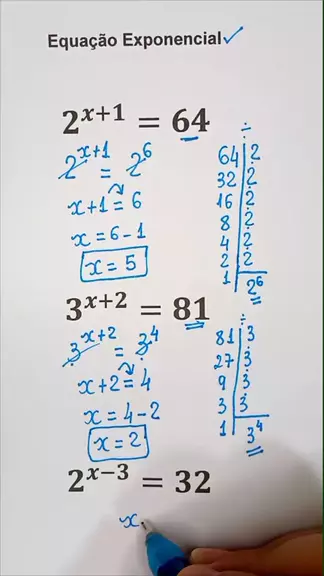 Equação Exponencial✓
2^{x+1} = 64
2^{x+1} = 2^6
x+1 = 6
x = 6-1
x = 5
÷
64|2
32|2
16|2
8|2
4|2
2|2
1|2^6
3^{x+2} = 81
3^{x+2} = 3^4
x+2 = 4
x = 4-2
x = 2
÷
81|3
27|3
9|3
3|3
1|3^4
2^{x-3} = 32
x